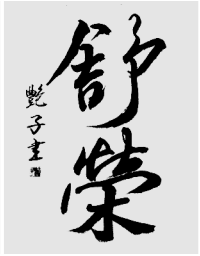 舒榮
艷子書